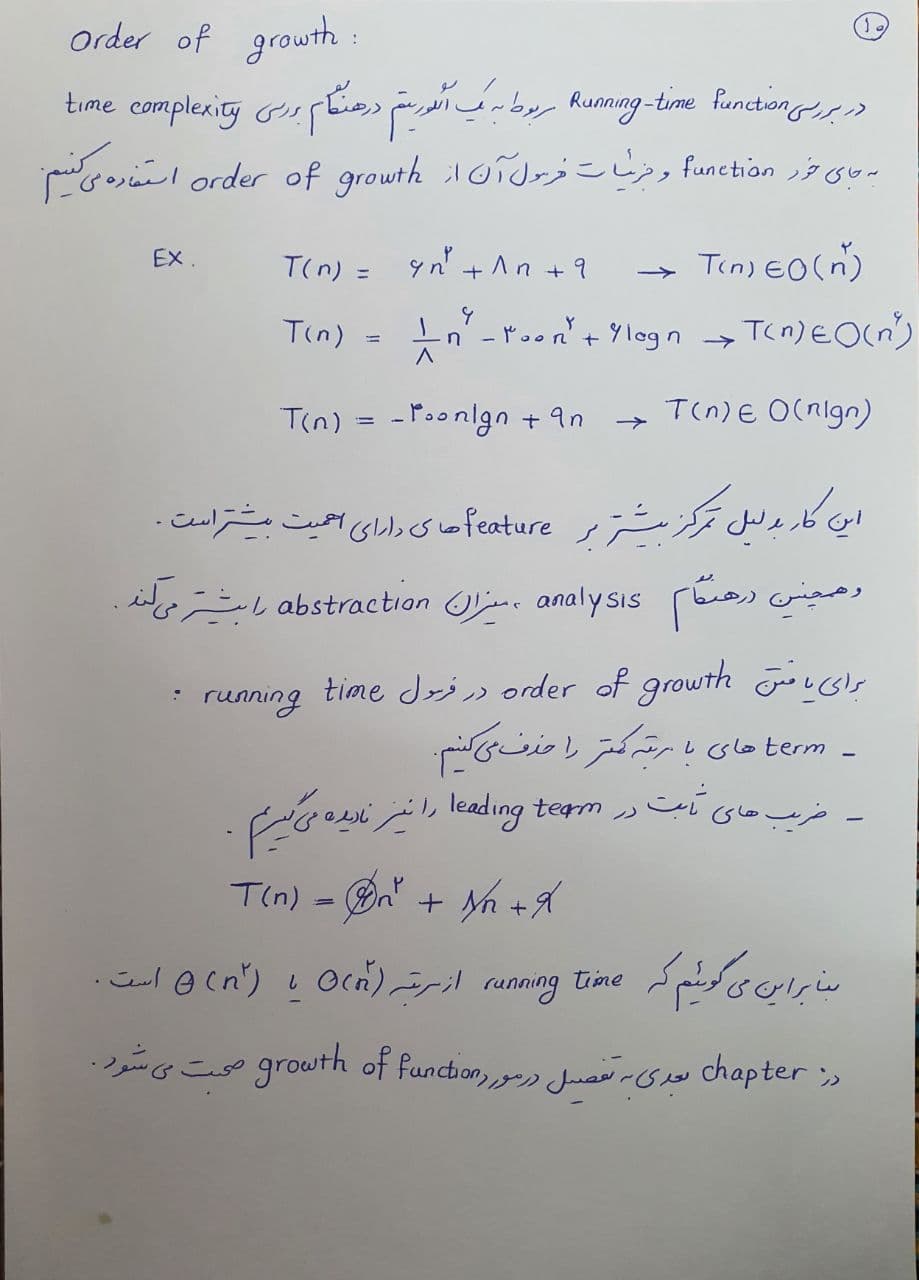 ۱۰
Order of growth :
در بررسی Running-time function مربوط به یک الگوریتم درهنگام بررسی time complexity
به جای خود function و جزئیات فرمول آن از order of growth استفاده می کنیم.
EX. T(n) = ۶n^۲ + ۸n + ۹ → T(n) ∈ O(n^۲)
T(n) = ۱/۸ n^۶ - ۳۰۰n^۲ + ۶logn → T(n) ∈ O(n^۶)
T(n) = -۳۰۰nlgn + ۹n → T(n) ∈ O(nlgn)
این کار بدلیل تمرکز بیشتر بر feature های دارای اهمیت بیشتر است.
وهمچنین درهنگام analysis، میزان abstraction را بیشتر می کند.
برای یافتن order of growth در فرمول running time :
- term های با مرتبه کمتر را حذف می کنیم.
- ضریب های ثابت در leading term را نیز نادیده می گیریم.
T(n) = ۶n^۲ + ۸n + ۹
بنابراین می گوئیم که running time از مرتبه O(n^۲) یا Θ(n^۲) است.
در chapter بعدی به تفصیل درمورد growth of function صحبت می شود.